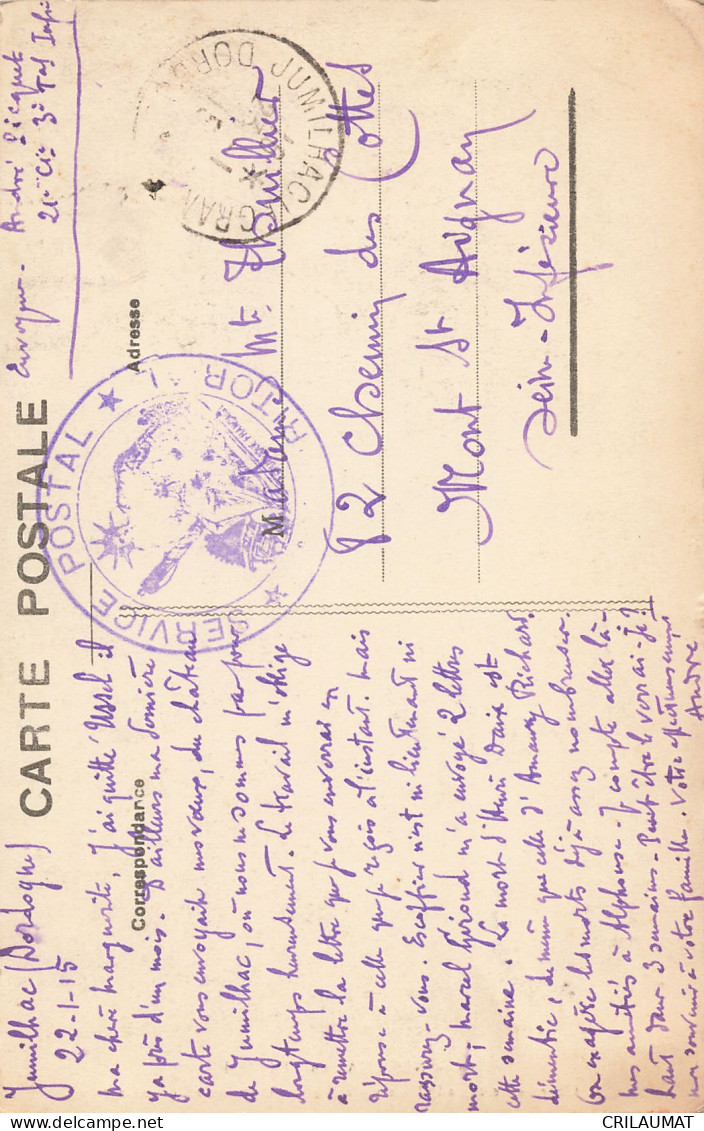 CARTE POSTALE
Correspondance
Adresse
Envoyeur - André Picquet
21e Cie 3e
Jumilhac (Dordogne)
22-1-15
Ma chère Marguerite, J'ai quitté Ussel il
y a près d'un mois. D'ailleurs ma dernière
carte vous envoyait mes vœux, du château
de Jumilhac, où nous ne sommes pas pour
longtemps heureusement. Le travail m'oblige
à remettre la lettre que je vous enverrai en
réponse à celle que je reçois à l'instant. Mais
rassurez-vous. Escoffier n'est ni lieutenant ni
mort; Marcel Girond m'a envoyé 2 lettres
cette semaine. La mort d'Henri est
démentie, de même que celle d'Amaury Richard.
On exagère les morts déjà assez nombreuses.
Mes amitiés à Alphonse. Je compte aller là-
haut dans 3 semaines. Peut être le verrai-je?
mon souvenir à votre famille. Votre affectueusement
André
Madame Mte Thuillier
82 Chemin des Cottes
Mont St Aignan
Seine-Inférieure
SERVICE POSTAL
JUMILHAC-LE-GRAND DORDOGNE
delcampe.net
CRILAUMAT